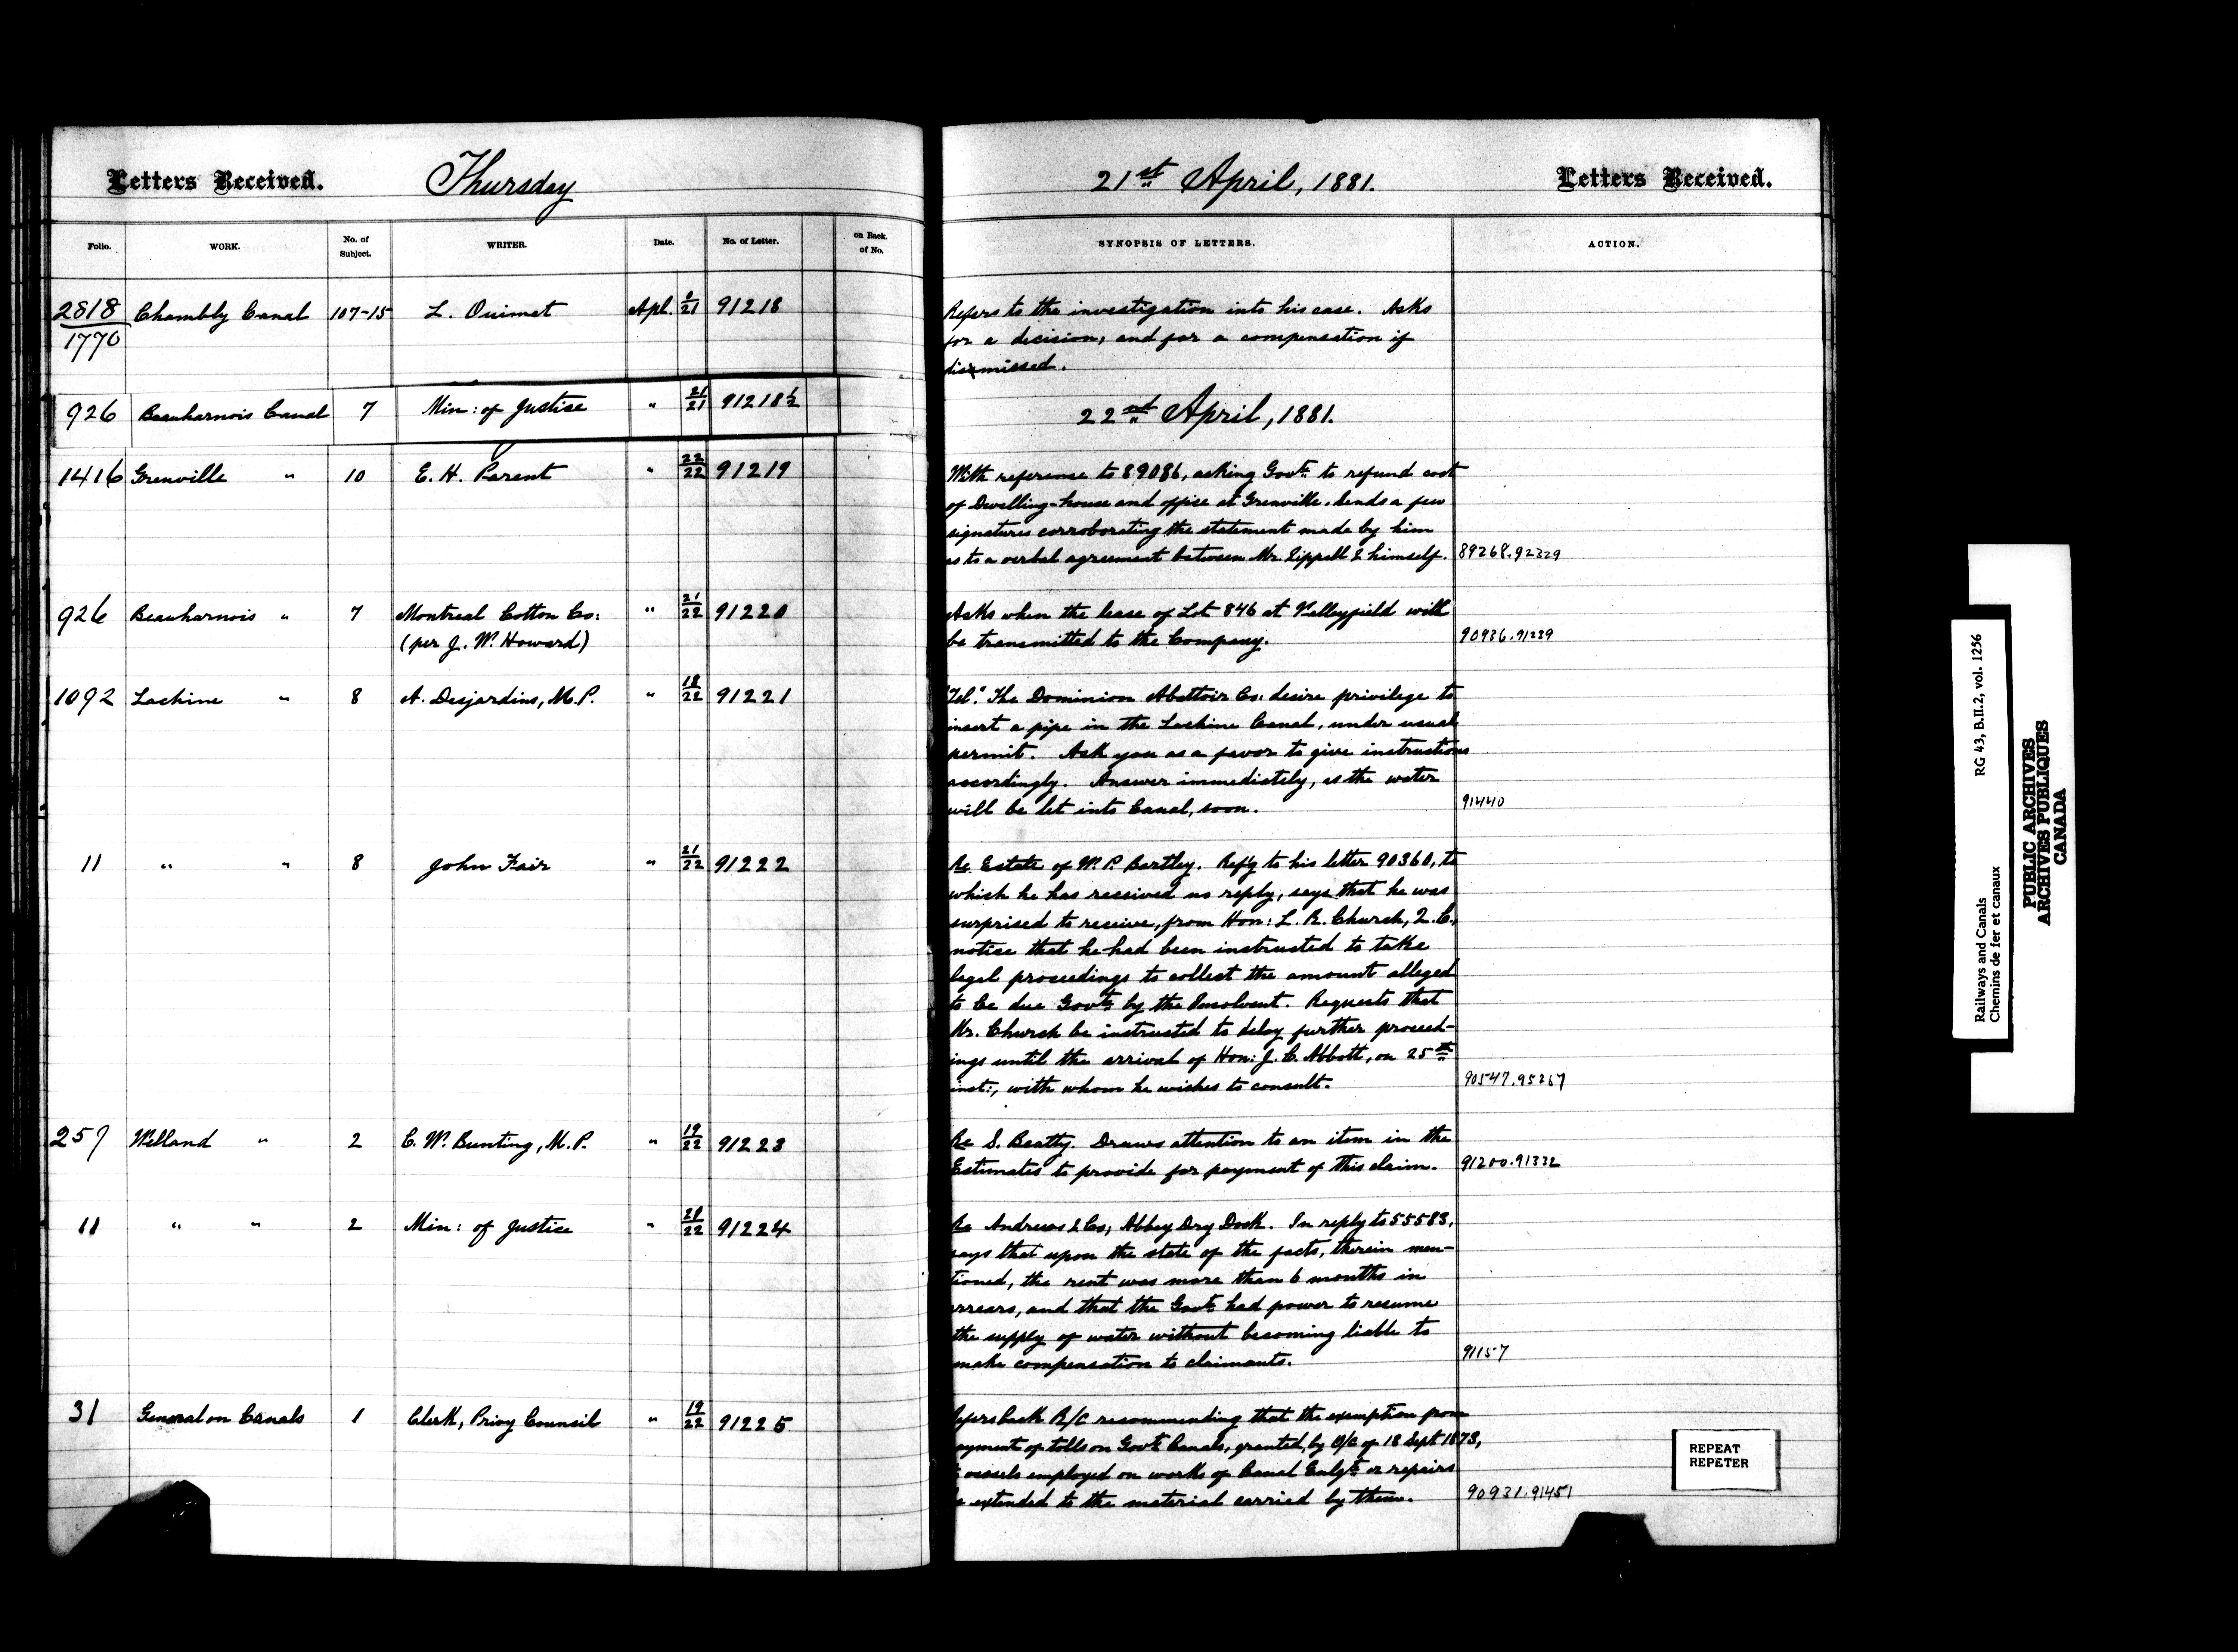 Letters Received. Thursday 21st April, 1881. Letters Received.
Folio. WORK. No. of Subject. WRITER. Date. No. of Letter. on Back. of No. SYNOPSIS OF LETTERS. ACTION.
2818/1770 Chambly Canal 107-15 L. Ouimet Apl. /21 91218 Refers to the investigation into his case. Asks
for a decision, and for a compensation if
dismissed.
926 Beauharnois Canal 7 Min: of Justice " 21/21 91218½
22nd April, 1881.
1416 Grenville " 10 E. H. Parent " 22/22 91219 With reference to 89086, asking Govt. to refund cost
of Dwelling-house and office at Grenville. Sends a few
signatures corroborating the statement made by him
as to a verbal agreement between Mr. Sippell & himself. 89268.92329
926 Beauharnois " 7 Montreal Cotton Co: " 21/22 91220 Asks when the lease of Lot 846 at Valleyfield will
(per J. W. Howard) be transmitted to the Company. 90936.91239
1092 Lachine " 8 A. Desjardins, M.P. " 18/22 91221 "Tel". The Dominion Abattoir Co: desire privilege to
insert a pipe in the Lachine Canal, under usual
permit. Ask you as a favor to give instructions
accordingly. Answer immediately, as the water
will be let into Canal, soon. 91440
11 " " 8 John Fair " 21/22 91222 Re Estate of W. P. Bartley. Ref'g to his letter 90360, to
which he has received no reply, says that he was
surprised to receive, from Hon: L. R. Church, Q.C.,
notice that he had been instructed to take
legal proceedings to collect the amount alleged
to be due Govt. by the Insolvent. Requests that
Mr. Church be instructed to delay further proceed-
ings until the arrival of Hon: J. C. Abbott, on 25th
inst:, with whom he wishes to consult. 90547.95267
257 Welland " 2 C. W. Bunting, M.P. " 19/22 91223 Re S. Beatty. Draws attention to an item in the
Estimates to provide for payment of this claim. 91200.91332
11 " " 2 Min: of Justice " 21/22 91224 Re Andrews & Co; Abbey Dry Dock. In reply to 55583,
says that upon the state of the facts, therein men-
tioned, the rent was more than 6 months in
arrears, and that the Govt. had power to resume
the supply of water without becoming liable to
make compensation to claimants. 91157
31 General on Canals 1 Clerk, Privy Council " 19/22 91225 Refers back R/C recommending that the exemption from
payment of tolls on Govt. Canals, granted, by O/C of 18 Sept 1873,
to vessels employed on works of Canal Enlgt. or repairs
be extended to the material carried by them. 90931.91451
REPEAT
REPETER
Railways and Canals RG 43, B.II.2, vol. 1256
Chemins de fer et canaux
PUBLIC ARCHIVES
ARCHIVES PUBLIQUES
CANADA